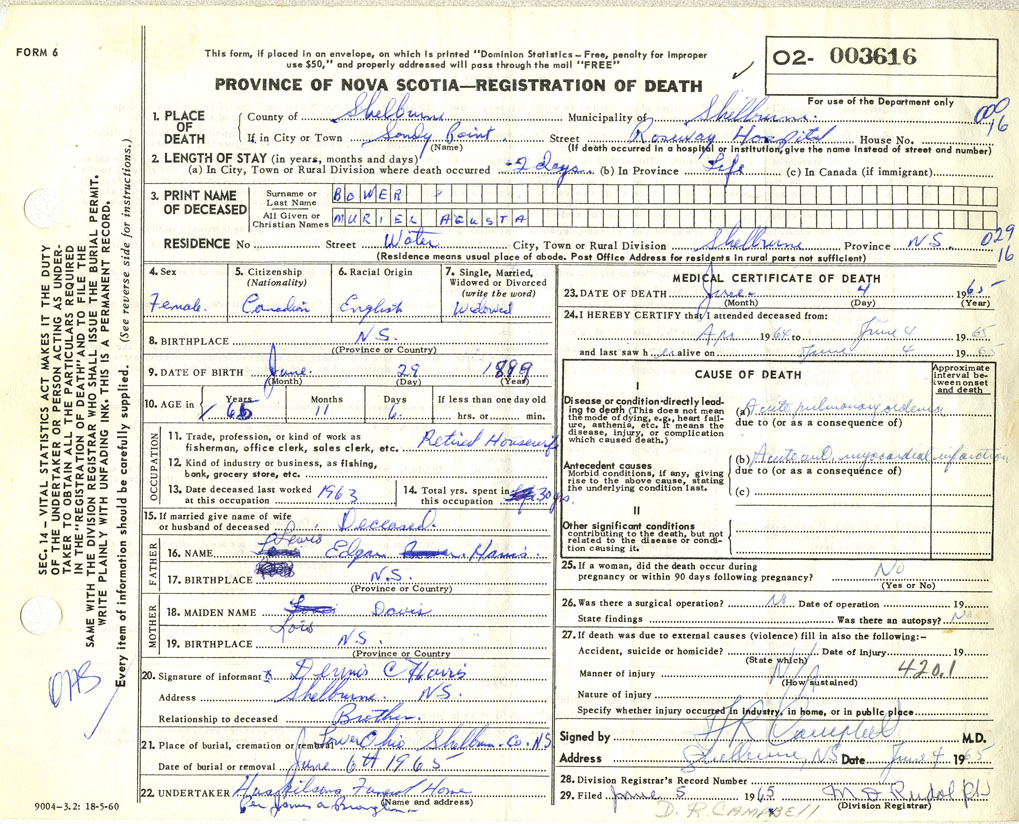 FORM 6
This form, if placed in an envelope, on which is printed "Dominion Statistics – Free, penalty for improper
use $50," and properly addressed will pass through the mail "FREE"
O2- 003616
PROVINCE OF NOVA SCOTIA—REGISTRATION OF DEATH
For use of the Department only
1. PLACE OF DEATH
County of Shelburne Municipality of Shilburne.
If in City or Town Sandy Point (Name) Street Roseway Hospital House No.
(If death occurred in a hospital or institution, give the name instead of street and number)
16
2. LENGTH OF STAY (in years, months and days)
(a) In City, Town or Rural Division where death occurred 2 days (b) In Province Life (c) In Canada (if immigrant)
3. PRINT NAME OF DECEASED
Surname or Last Name BOWER
All Given or Christian Names MURIEL AGUSTA
RESIDENCE No Street Water City, Town or Rural Division Shelburne Province N.S.
029
16
(Residence means usual place of abode. Post Office Address for residents in rural parts not sufficient)
4. Sex Female.
5. Citizenship (Nationality) Canadian
6. Racial Origin English
7. Single, Married, Widowed or Divorced (write the word) Widowed
8. BIRTHPLACE N.S. (Province or Country)
9. DATE OF BIRTH June. (Month) 29 (Day) 1889 (Year)
10. AGE in Years Months 11 Days 6 If less than one day old hrs. or min.
OCCUPATION
11. Trade, profession, or kind of work as fisherman, office clerk, sales clerk, etc. Retired Housewife
12. Kind of industry or business, as fishing, bank, grocery store, etc.
13. Date deceased last worked at this occupation 1963
14. Total yrs. spent in this occupation 30 yrs.
15. If married give name of wife or husband of deceased Deceased.
FATHER
16. NAME Lewis Edgar Harris
17. BIRTHPLACE N.S. (Province or Country)
MOTHER
18. MAIDEN NAME Lois Davis
19. BIRTHPLACE N.S. (Province or Country)
20. Signature of informant x Dennis C Harris
Address Shelburne. N.S.
Relationship to deceased Brother.
21. Place of burial, cremation or removal Lower Ohio Shelburn. Co. N.S
Date of burial or removal June 6th 1965
22. UNDERTAKER Huskilsons Funeral Home
(Name and address)
9004-3.2: 18-5-60
MEDICAL CERTIFICATE OF DEATH
23. DATE OF DEATH June. (Month) 4 (Day) 1965 (Year)
24. I HEREBY CERTIFY that I attended deceased from:
Apr 1964 to June 4 1965
and last saw her alive on June 4 1965
CAUSE OF DEATH
Approximate interval between onset and death
I
Disease or condition directly leading to death (This does not mean the mode of dying, e.g., heart failure, asthenia, etc. It means the disease, injury, or complication which caused death.)
(a) Acute pulmonary oedema
due to (or as a consequence of)
Antecedent causes
Morbid conditions, if any, giving rise to the above cause, stating the underlying condition last.
(b) myocardial infarction
due to (or as a consequence of)
(c)
II
Other significant conditions contributing to the death, but not related to the disease or condition causing it.
25. If a woman, did the death occur during pregnancy or within 90 days following pregnancy? No (Yes or No)
26. Was there a surgical operation? No Date of operation 19
State findings Was there an autopsy? No
27. If death was due to external causes (violence) fill in also the following:–
Accident, suicide or homicide? (State which) Date of injury 19
Manner of injury N/A (How sustained) 420.1
Nature of injury
Specify whether injury occurred in industry, in home, or in public place
Signed by F R Campbell M.D.
Address Shelburne, NS Date June 4 1965
28. Division Registrar's Record Number
29. Filed June 5 1965 (Division Registrar)
D. R. CAMPBELL
SEC. 14 – VITAL STATISTICS ACT MAKES IT THE DUTY
OF THE UNDERTAKER OR PERSON ACTING AS UNDER-
TAKER TO OBTAIN ALL THE PARTICULARS REQUIRED
IN THE "REGISTRATION OF DEATH" AND TO FILE THE
SAME WITH THE DIVISION REGISTRAR WHO SHALL ISSUE THE BURIAL PERMIT.
WRITE PLAINLY WITH UNFADING INK. THIS IS A PERMANENT RECORD.
Every item of information should be carefully supplied. (See reverse side for instructions.)